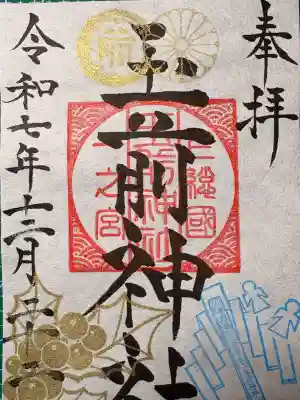 奉拝
玉前神社
上総國
一之宮
令和七年十二月二十